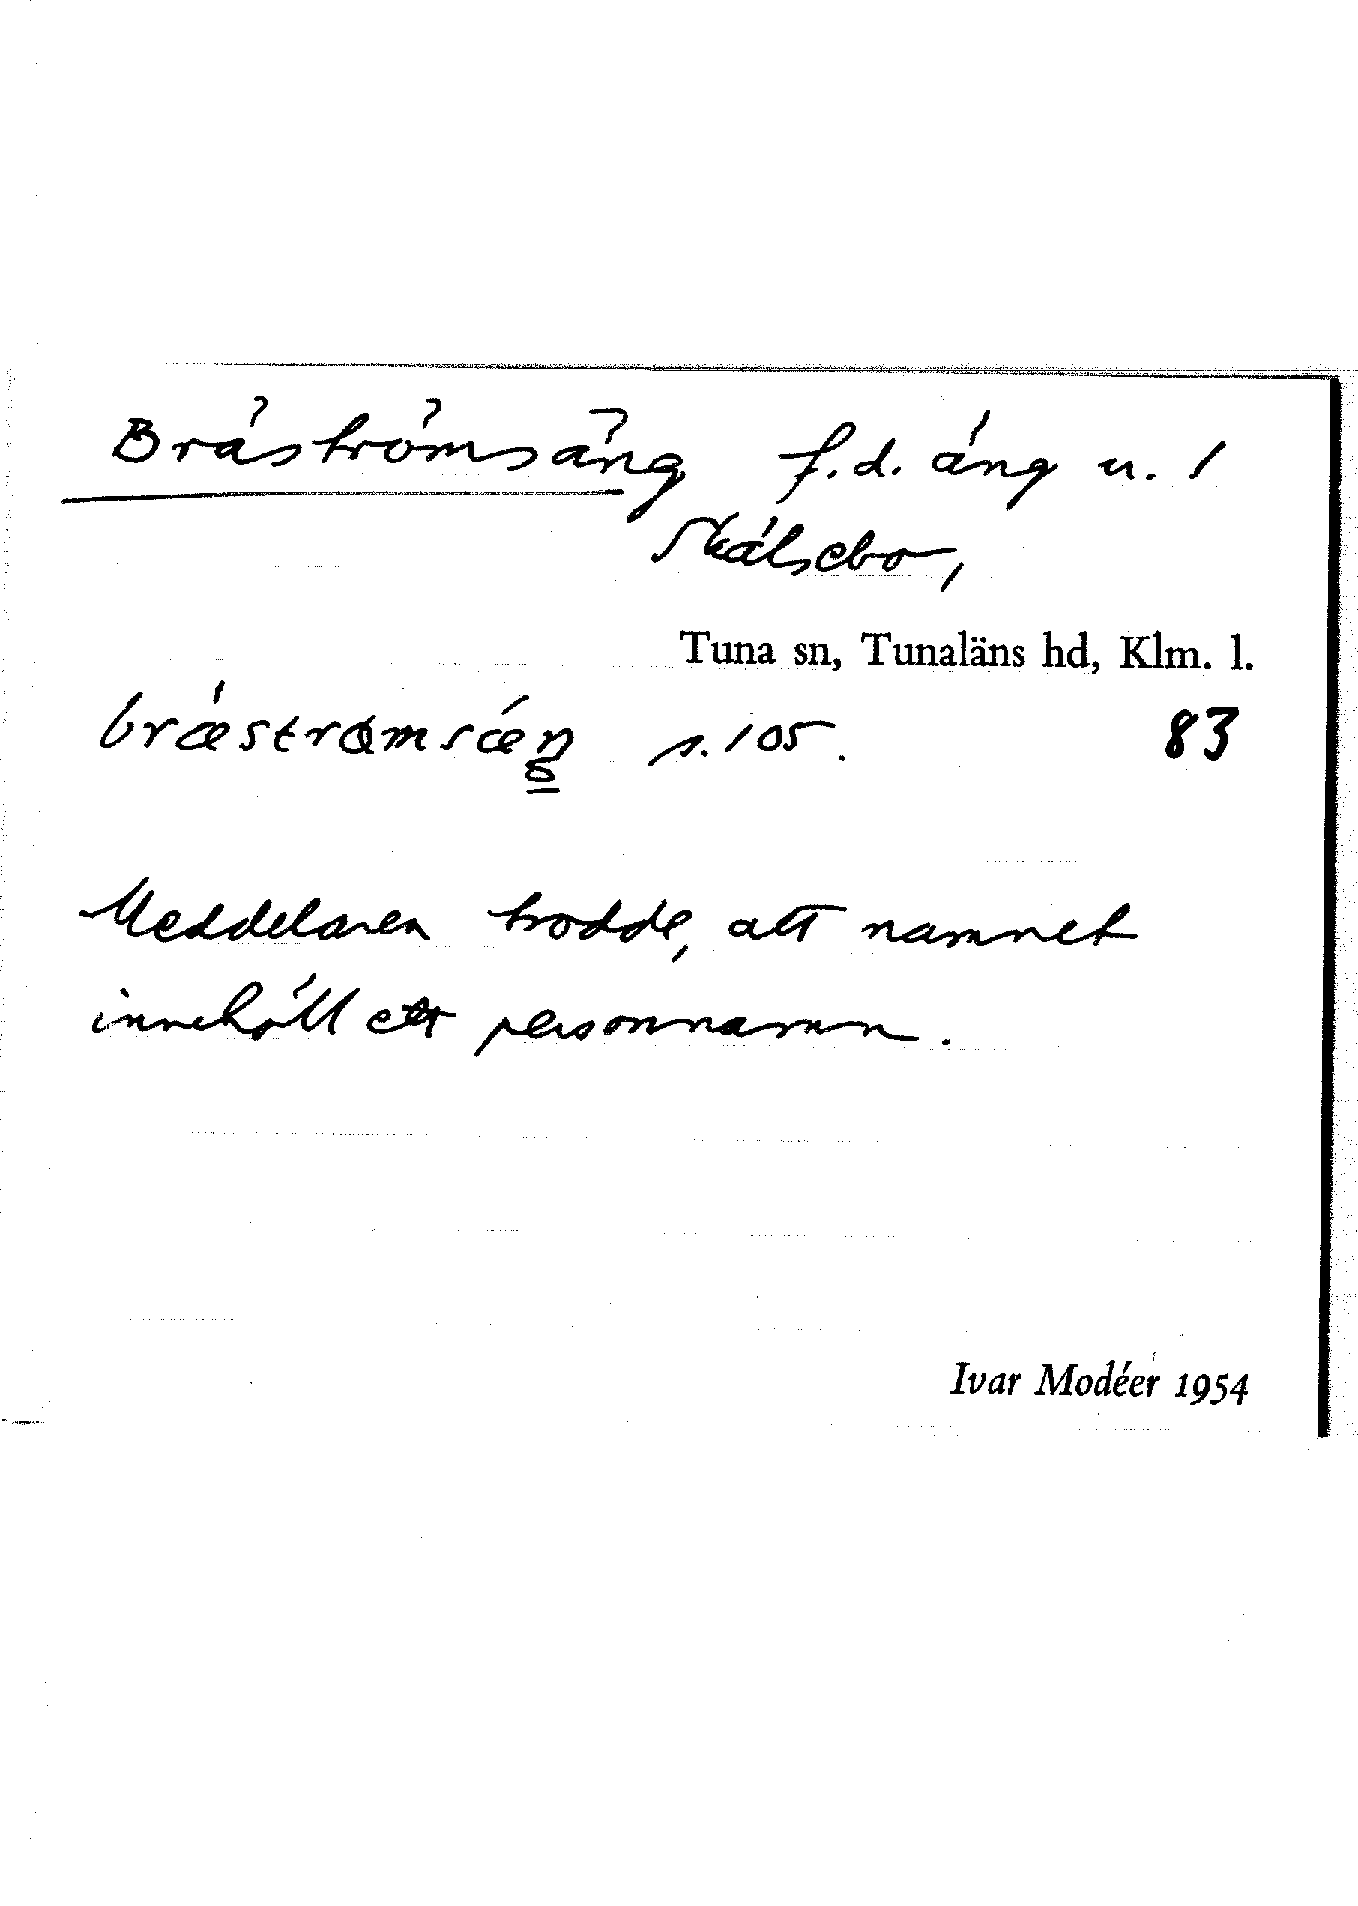 Bräströmsäng f.d. äng u. 1
Skälsebo,
Tuna sn, Tunaläns hd, Klm. l.
s. 105. 83
Meddelaren trodde, att namnet
innehöll ett personnamn.
Ivar Modéer 1954